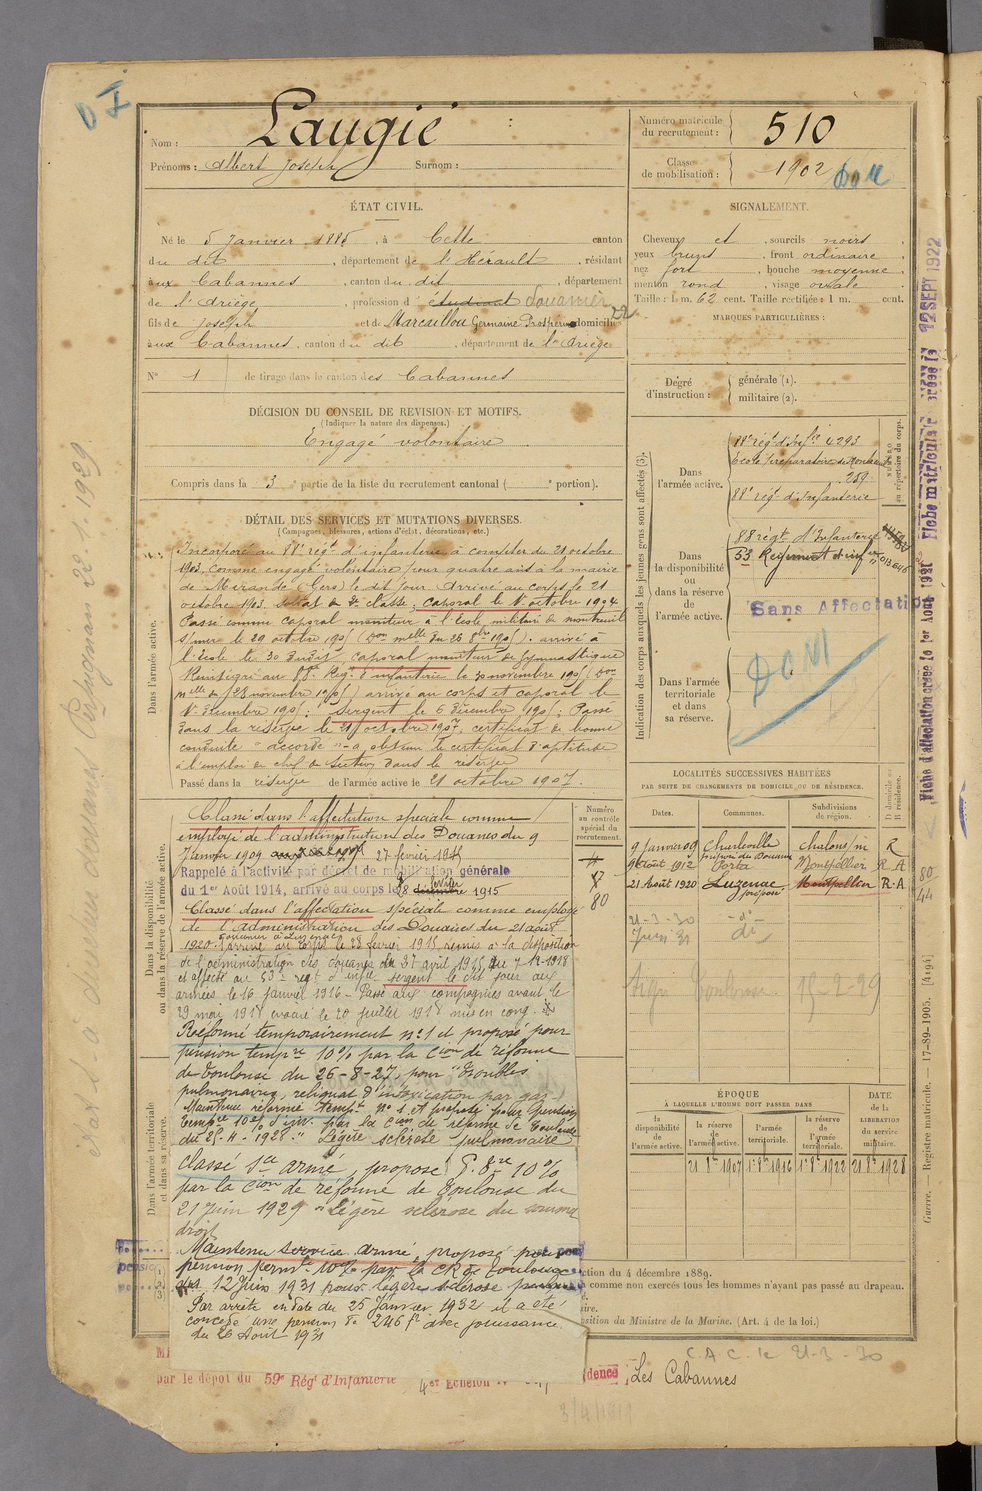 Nom : Laugié
Prénoms : Albert Joseph Surnom :
Numéro matricule du recrutement : 510
Classe de mobilisation : 1902
ÉTAT CIVIL.
Né le 5 Janvier 1885, à Cette canton
du dit, département de l'Hérault, résidant
aux Cabannes, canton du dit, département
de l'Ariège, profession d'étudiant Douanier
fils de Joseph et de Marcaillou Germaine Prospérine domiciliés
aux Cabannes, canton du dit, département de l'Ariège
N° 1 de tirage dans le canton des Cabannes
SIGNALEMENT.
Cheveux et, sourcils noirs,
yeux bruns, front ordinaire,
nez fort, bouche moyenne,
menton rond, visage ovale.
Taille : 1 m. 62 cent. Taille rectifiée : 1 m. cent.
MARQUES PARTICULIÈRES :
Degré d'instruction : générale (1). militaire (2).
DÉCISION DU CONSEIL DE REVISION ET MOTIFS.
(Indiquer la nature des dispenses.)
Engagé volontaire
Compris dans la 3e partie de la liste du recrutement cantonal ( e portion).
DÉTAIL DES SERVICES ET MUTATIONS DIVERSES.
(Campagnes, blessures, actions d'éclat, décorations, etc.)
Dans l'armée active.
Incorporé au 88e régt d'infanterie à compter du 21 octobre
1903. Comme engagé volontaire pour quatre ans à la mairie
de Mirande (Gers) le dit jour. Arrivé au corps le 21
octobre 1903. Soldat de 2e classe ; caporal le 1er octobre 1904
Passé comme caporal moniteur à l'Ecole militaire de Montreuil
s/mer le 29 octobre 1905 (Don melle du 26 8bre 1905). arrivé à
l'Ecole le 30 dudit caporal moniteur de gymnastique
Réintégré au 88e Régt d'infanterie le 30 novembre 1905 (Don
melle du 28 novembre 1905) arrivé au corps et caporal le
1er décembre 1905 ; Sergent le 6 décembre 1905 ; Passé
dans la réserve le 21 octobre 1907, certificat de bonne
conduite "accordé" - a obtenu le certificat d'aptitude
à l'emploi de chef de section dans la réserve
Passé dans la réserve de l'armée active le 21 octobre 1907.
Dans la disponibilité ou dans la réserve de l'armée active.
Classé dans l'affectation spéciale comme
employé de l'administration des Douanes du 9
Janvier 1909 27 février 1915
Rappelé à l'activité par décret de mobilisation générale
du 1er Août 1914, arrivé au corps le 28 février 1915
Classé dans l'affectation spéciale comme employé
de l'Administration des Douanes du 21 août
1920. arrivé au corps le 28 février 1915 remis à la disposition
de l'administration des douanes du 27 avril 1915 au 7-12-1918
et affecté au 53e régt d'infie sergent le dit jour aux
armées le 16 janvier 1916 - Passé aux compagnies avant le
29 mai 1918 évacué le 20 juillet 1918 mis en cong.
Réformé temporairement n° 1 et proposé pour
pension tempre 10% par la Cion de réforme
de Toulouse du 26-8-27, pour "Troubles
pulmonaires, reliquat d'intoxication par gaz
Maintenu réformé tempt n° 1 et proposé pour pension
tempre 10% d'inv. par la Cion de réforme de Toulouse
du 25-4-1928. "Légère sclérose pulmonaire
classé sce armé, proposé P. 8re 10%
par la Cion de réforme de Toulouse du
21 Juin 1929 "légère sclérose du sommet
droit
Maintenu service armé, proposé pour
pension permte 10% par la CR de Toulouse
du 12 Juin 1931 pour légère sclérose
Par arrêté en date du 25 Janvier 1932 il a été
concédé une pension de 246 f avec jouissance
du 26 Août 1931
Dans l'armée territoriale et dans sa réserve.
Numéro au contrôle spécial du recrutement.
80
Indication des corps auxquels les jeunes gens sont affectés (3).
NUMÉRO au répertoire du corps.
Dans l'armée active.
88e régt d'Infie 4293
Ecole Préparatoire de Montreuil
259
88e régt d'Infanterie
Dans la disponibilité ou dans la réserve de l'armée active.
88 régt d'Infanterie
53 Régiment d'inf
Sans Affectation
Dans l'armée territoriale et dans sa réserve.
DOM
LOCALITÉS SUCCESSIVES HABITÉES
PAR SUITE DE CHANGEMENTS DE DOMICILE OU DE RÉSIDENCE.
Dates. Communes. Subdivisions de région. D domicile ou R résidence.
9 Janvier 09 Charleville Chalons/m R
9 Août 1912 préposé des Douanes Porta Montpellier R. A 80
21 Août 1920 Luzenac préposé Montpellier R-A 44
21-3-30 -do-
Juin 31 do
Toulouse 15-2-29
ÉPOQUE
À LAQUELLE L'HOMME DOIT PASSER DANS
la disponibilité de l'armée active. la réserve de l'armée active. l'armée territoriale. la réserve de l'armée territoriale.
DATE de la LIBÉRATION du service militaire.
21 8bre 1907 1er 8bre 1916 1er 8bre 1922 21 8bre 1928
ction du 4 décembre 1889.
comme non exercés tous les hommes n'ayant pas passé au drapeau.
sition du Ministre de la Marine. (Art. 4 de la loi.)
par le dépôt du 59e Régt d'Infanterie
Les Cabannes
C.A.C. le 21-3-30
Fiche d'affectation créée le 1er Août 1921
Fiche matriculaire créée le 12 SEPT 1922
Guerre. — Registre matricule. — 17-89-1905. [4494]